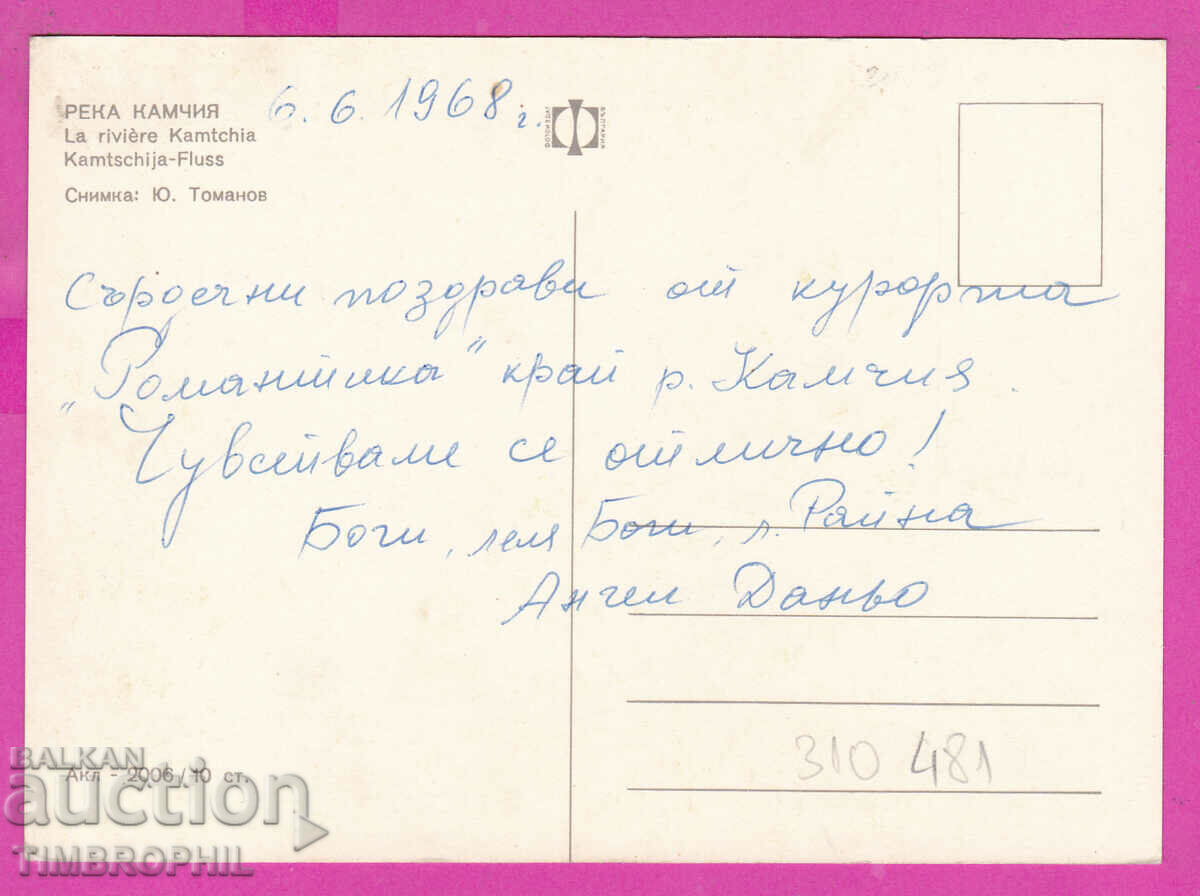 РЕКА КАМЧИЯ
La rivière Kamtchia
Kamtschija-Fluss
Снимка: Ю. Томанов
6. 6. 1968 г.
ФОТОИЗДАТ
БЪЛГАРИЯ
Сърдечни поздрави от курорта
„Романтика" край р. Камчия.
Чувстваме се отлично!
Боги, леля Боги, л. Райна
Ангел Даньо
310 481
Акл - 2006 / 10 ст.
BALKAN
auction
TIMBROPHIL